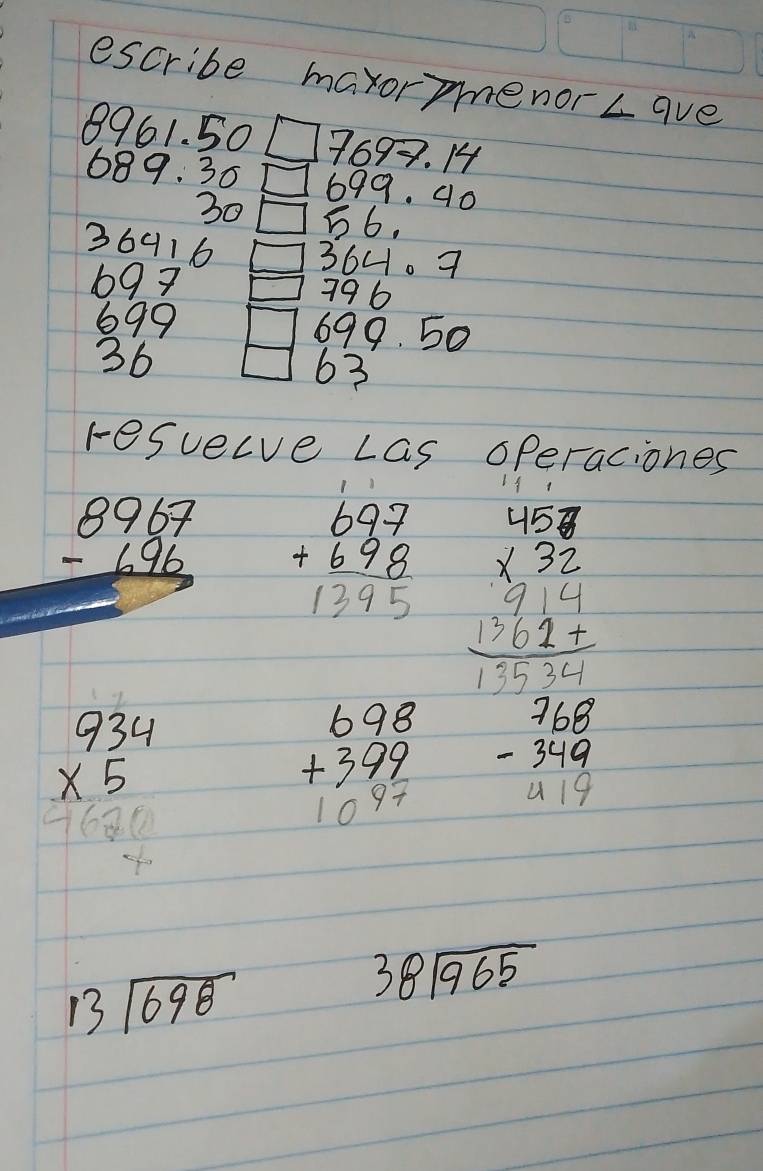 escribe mayor > menor < que
8961.50 □ 7697.14
689.30 □ 699.40
30 □ 56.
36416 □ 364.7
697 □ 796
699 □ 699.50
36 □ 63
resuelve Las operaciones
8967 697 457
- 696 + 698 x 32
1395 914
1361+
13534
934 698 768
x 5 +399 - 349
4670 1097 419
+
13 698 38 965